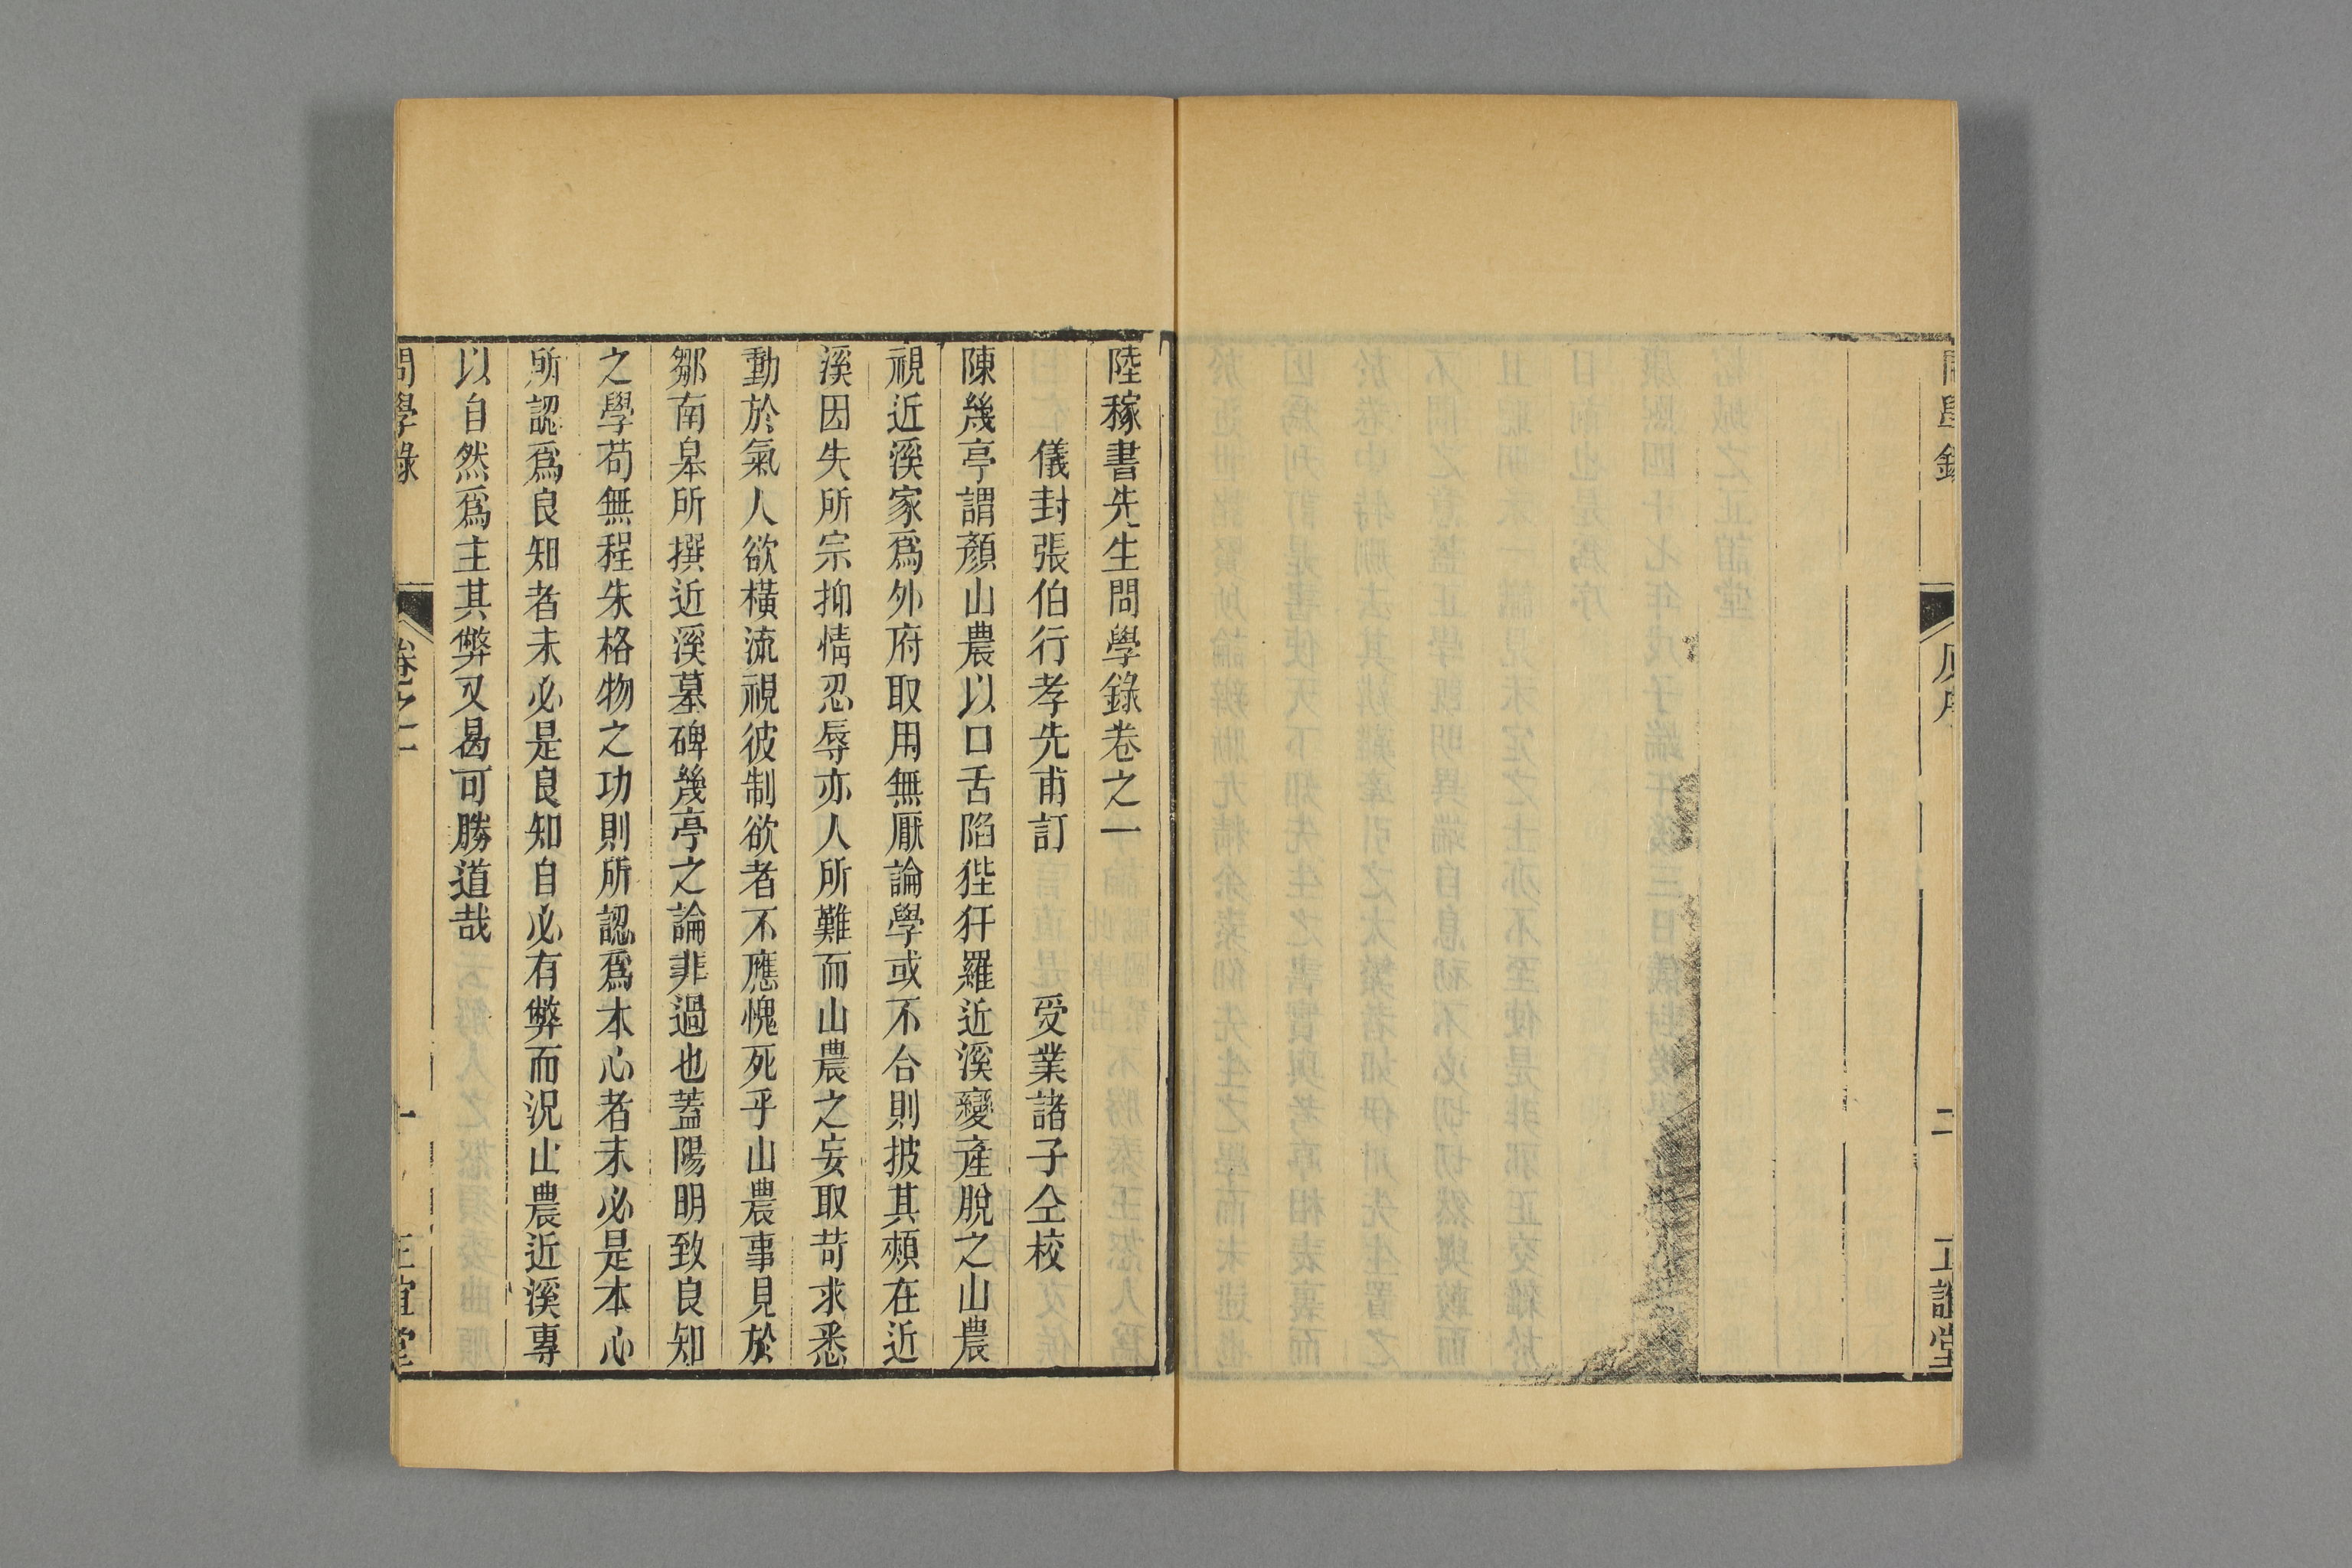 陸稼書先生問學錄卷之一
儀封張伯行孝先甫訂　受業諸子仝校
陳幾亭謂顏山農以口舌陷狴犴羅近溪變產脫之山農
視近溪家爲外府取用無厭論學或不合則披其頰在近
溪因失所宗抑情忍辱亦人所難而山農之妄取苛求悉
動於氣人欲橫流視彼制欲者不應愧死乎山農事見於
鄒南皋所撰近溪墓碑幾亭之論非過也蓋陽明致良知
之學苟無程朱格物之功則所認爲本心者未必是本心
所認爲良知者未必是良知自必有弊而況山農近溪專
以自然爲主其弊又曷可勝道哉
問學錄　卷之一　一　正誼堂